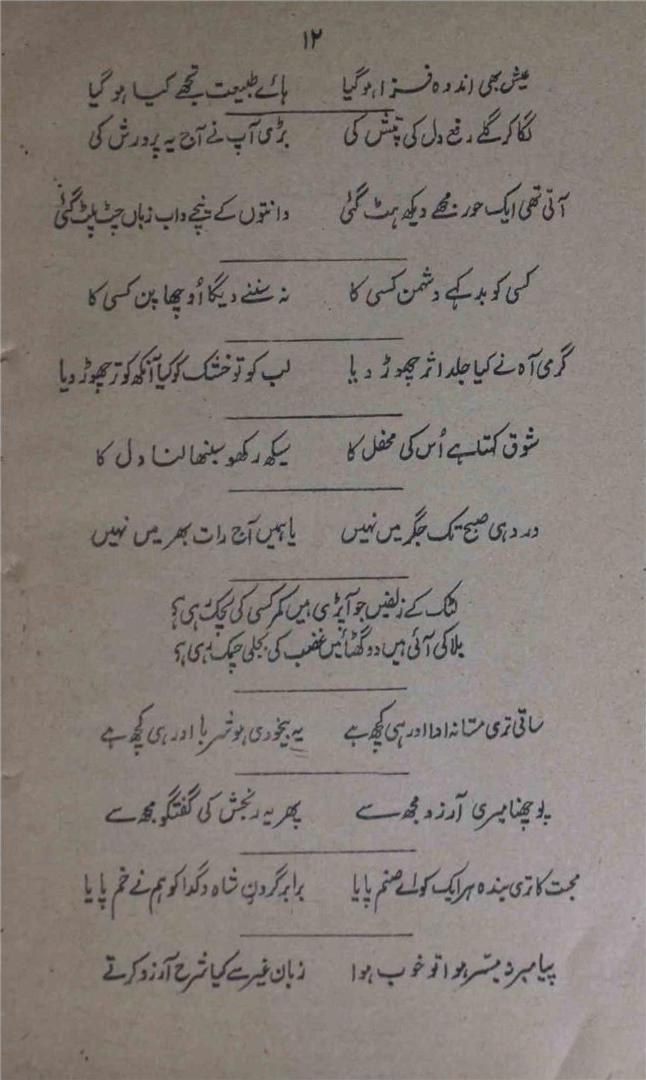 ۱۲
عیش بھی اندوہ فزا ہو گیا ہائے طبیعت تجھے کیا ہو گیا
لگا کر گلے رفع دل کی تپش کی بڑی آپ نے آج یہ پرورش کی
آتی تھی ایک حور مجھے دیکھ ہٹ گئی دانتوں کے نیچے داب زباں جھٹ پلٹ گئی
کسی کو بد کہے دشمن کسی کا نہ سننے دیگا اُوچھا پن کسی کا
گرمی آہ نے کیا جلد اثر چھوڑ دیا لب کو تو خشک کو کیا آنکھ کو تر چھوڑ دیا
شوق کہتا ہے اُس کی محفل کا سیکھ رکھو سنبھالنا دل کا
درد ہی صبح تک جگر میں نہیں یا ہمیں آج رات بھر میں نہیں
لٹک کے زلفیں جو آپڑی ہیں کمر کسی کی لچک رہی ہے
بلا کی آئی ہیں دو گھٹائیں غضب کی بجلی چمک رہی ہے
ساقی تری مستانہ ادا اور ہی کچھ ہے یہ بیخودی ہوشربا اور ہی کچھ ہے
پوچھنا میری آرزو مجھ سے پھر یہ رنجش کی گفتگو مجھ سے
محبت کا تری بندہ ہر ایک کو اے صنم پایا برابر گردنِ شاہ و گدا کو ہم نے خم پایا
پیامبر نہ میسر ہوا تو خوب ہوا زبان غیر سے کیا شرح آرزو کرتے